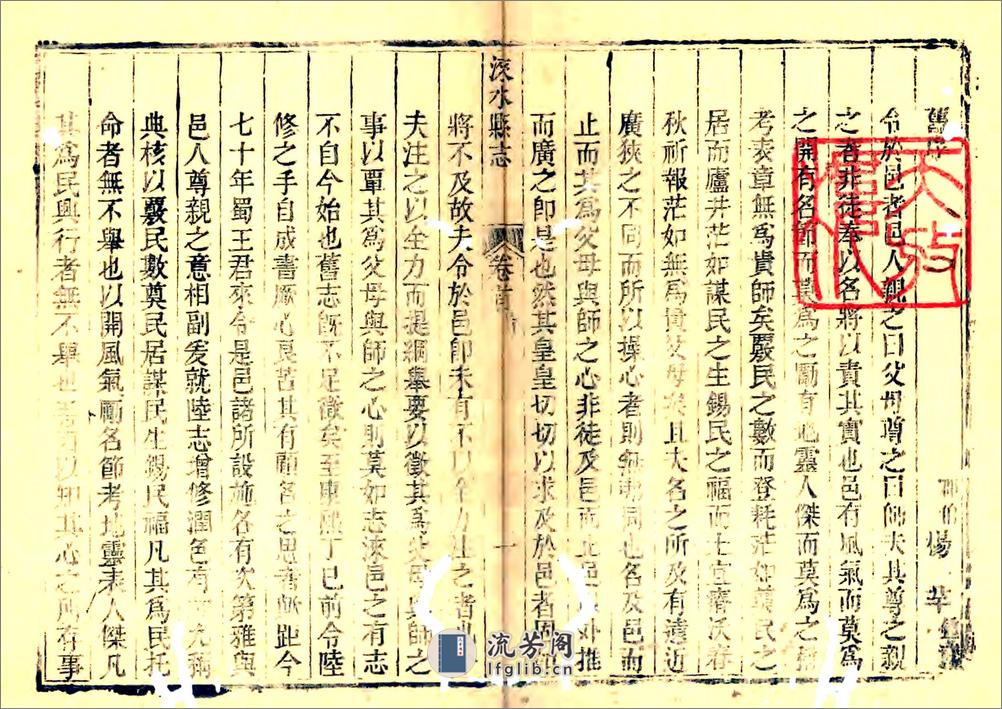 舊序
楊
令於邑者邑人親之曰父母尊之曰師夫其尊之親
之者非徒奉以名將以責其實也邑有風氣而莫為
之開有名節而莫為之勵有地靈人傑而莫為之
考表章無為貴師矣覈民之數而登耗茫如奠民之
居而廬井茫如謀民之生錫民之福而土宜齊沃春
秋祈報茫如無為貴父母矣且大名之所及有遠近
廣狹之不同而所以操心者則無同也名及邑而
止而其為父母與師之心非徒及邑而止邑外推
而廣之即是也然其皇皇切切以求及於邑者固
將不及故夫令於邑即未有不以全力注之者
夫注之以全力而提綱舉要以徵其為父母與師之
事以覃其為父母與師之心則莫如志淶邑之有志
不自今始也舊志既不足徵矣至康熙丁巳前令陸
修之手自成書厥心良苦其有顧名之思者歟距今
七十年蜀王君來令是邑諸所設施各有次第雅與
邑人尊親之意相副爰就陸志增修潤色有尤稱
典核以覈民數奠民居謀民生錫民福凡其為民托
命者無不舉也以開風氣勵名節考地靈表人傑凡
其為民興行者無不舉也以知其心之所有事
淶水縣志
卷首
一
天
流芳阁
lfglib.cn